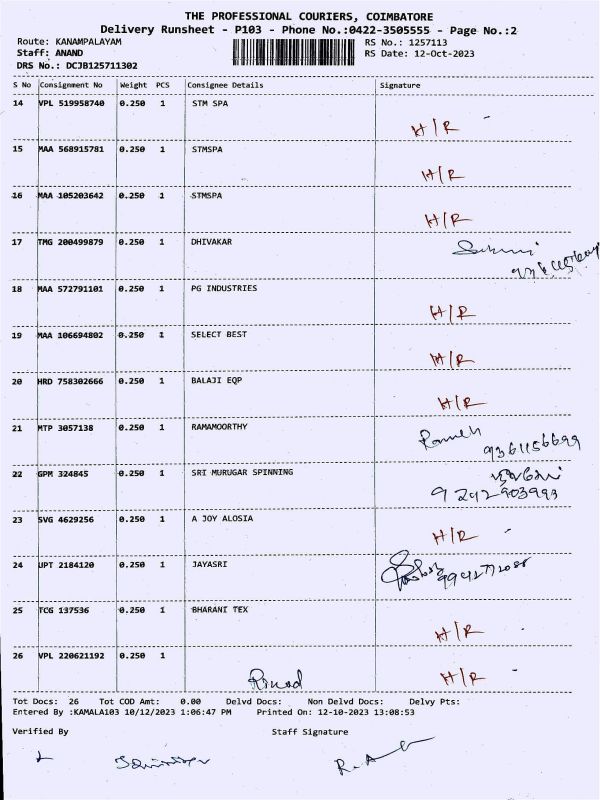 THE PROFESSIONAL COURIERS, COIMBATORE
Delivery Runsheet - P103 - Phone No.:0422-3505555 - Page No.:2
Route: KANAMPALAYAM RS No.: 1257113
Staff: ANAND RS Date: 12-Oct-2023
DRS No.: DCJB125711302
S No Consignment No Weight PCS Consignee Details Signature
14 VPL 519958740 0.250 1 STM SPA H/R
15 MAA 568915781 0.250 1 STMSPA H/R
16 MAA 105203642 0.250 1 STMSPA H/R
17 TMG 200499879 0.250 1 DHIVAKAR
18 MAA 572791101 0.250 1 PG INDUSTRIES H/R
19 MAA 106694802 0.250 1 SELECT BEST H/R
20 HRD 758302666 0.250 1 BALAJI EQP H/R
21 MTP 3057138 0.250 1 RAMAMOORTHY 9361156699
22 GPM 324845 0.250 1 SRI MURUGAR SPINNING 9242903993
23 SVG 4629256 0.250 1 A JOY ALOSIA H/R
24 JPT 2184120 0.250 1 JAYASRI
25 TCG 137536 0.250 1 BHARANI TEX H/R
26 VPL 220621192 0.250 1 H/R
Tot Docs: 26 Tot COD Amt: 0.00 Delvd Docs: Non Delvd Docs: Delvy Pts:
Entered By :KAMALA103 10/12/2023 1:06:47 PM Printed On: 12-10-2023 13:08:53
Verified By Staff Signature